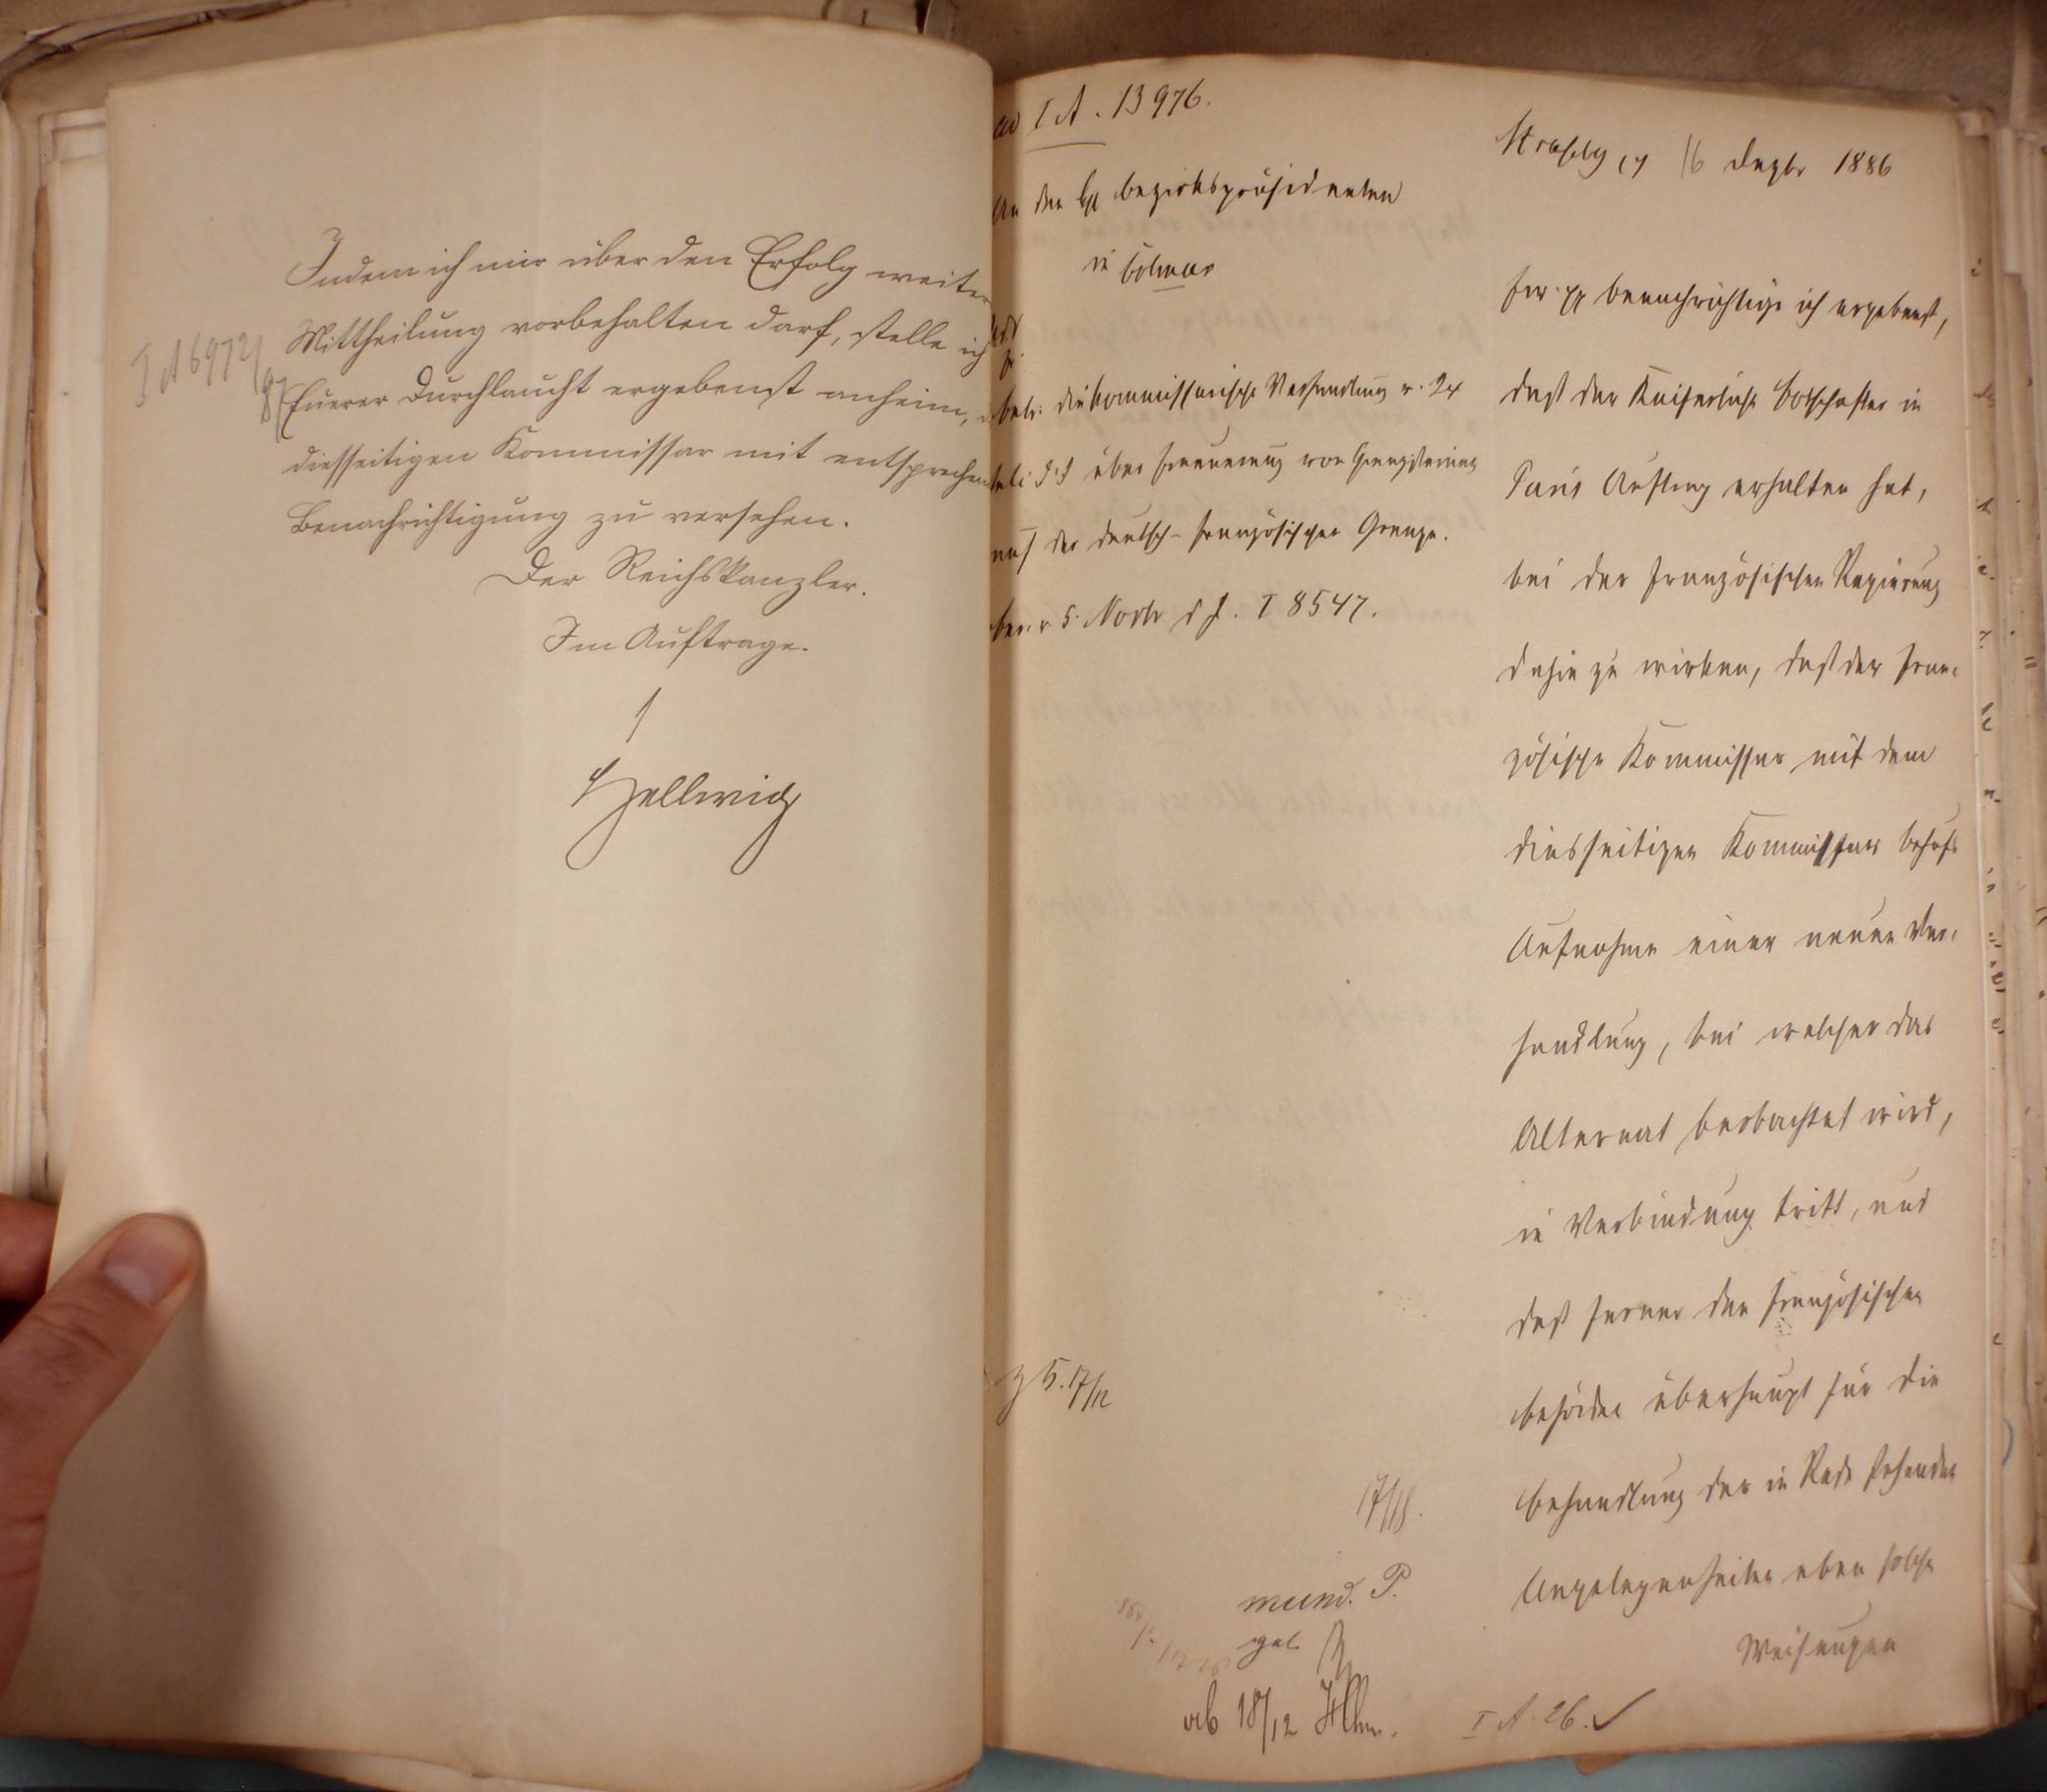 Indem ich mir über den Erfolg weitere
Mittheilung vorbehalten darf, stelle ich
Euerer Durchlaucht ergebenst anheim,
diesseitigen Kommissar mit entsprechen
Benachrichtigung zu versehen.
Der Reichskanzler.
Im Auftrage.
Hellwig
I A 6972/87
ad I A. 13976.
An den Bezirkspräsidenten
in Colmar
betr. die kommissarische Verhandlung v. 24
Juli d. J. über Erneuerung von Grenzsteinen
auf der deutsch-französischen Grenze.
Ber. v. 5. Novbr d J. I 8547.
z 5. 17/12
17/18.
mund. P.
gel.
ab 18/12
Straßbg, 16 Dezbr 1886
Ew. pp benachrichtige ich ergebenst,
daß der Kaiserliche Botschafter in
Paris Auftrag erhalten hat,
bei der französischen Regierung
dahin zu wirken, daß der fran-
zösische Kommissar mit dem
diesseitigen Kommissar behufs
Aufnahme einer neuen Ver-
handlung, bei welcher das
Alternat beobachtet wird,
in Verbindung tritt, und
daß ferner den französischen
Behörden überhaupt für die
Behandlung der in Rede stehenden
Angelegenheiten eben solche
Weisungen
I A. 26.